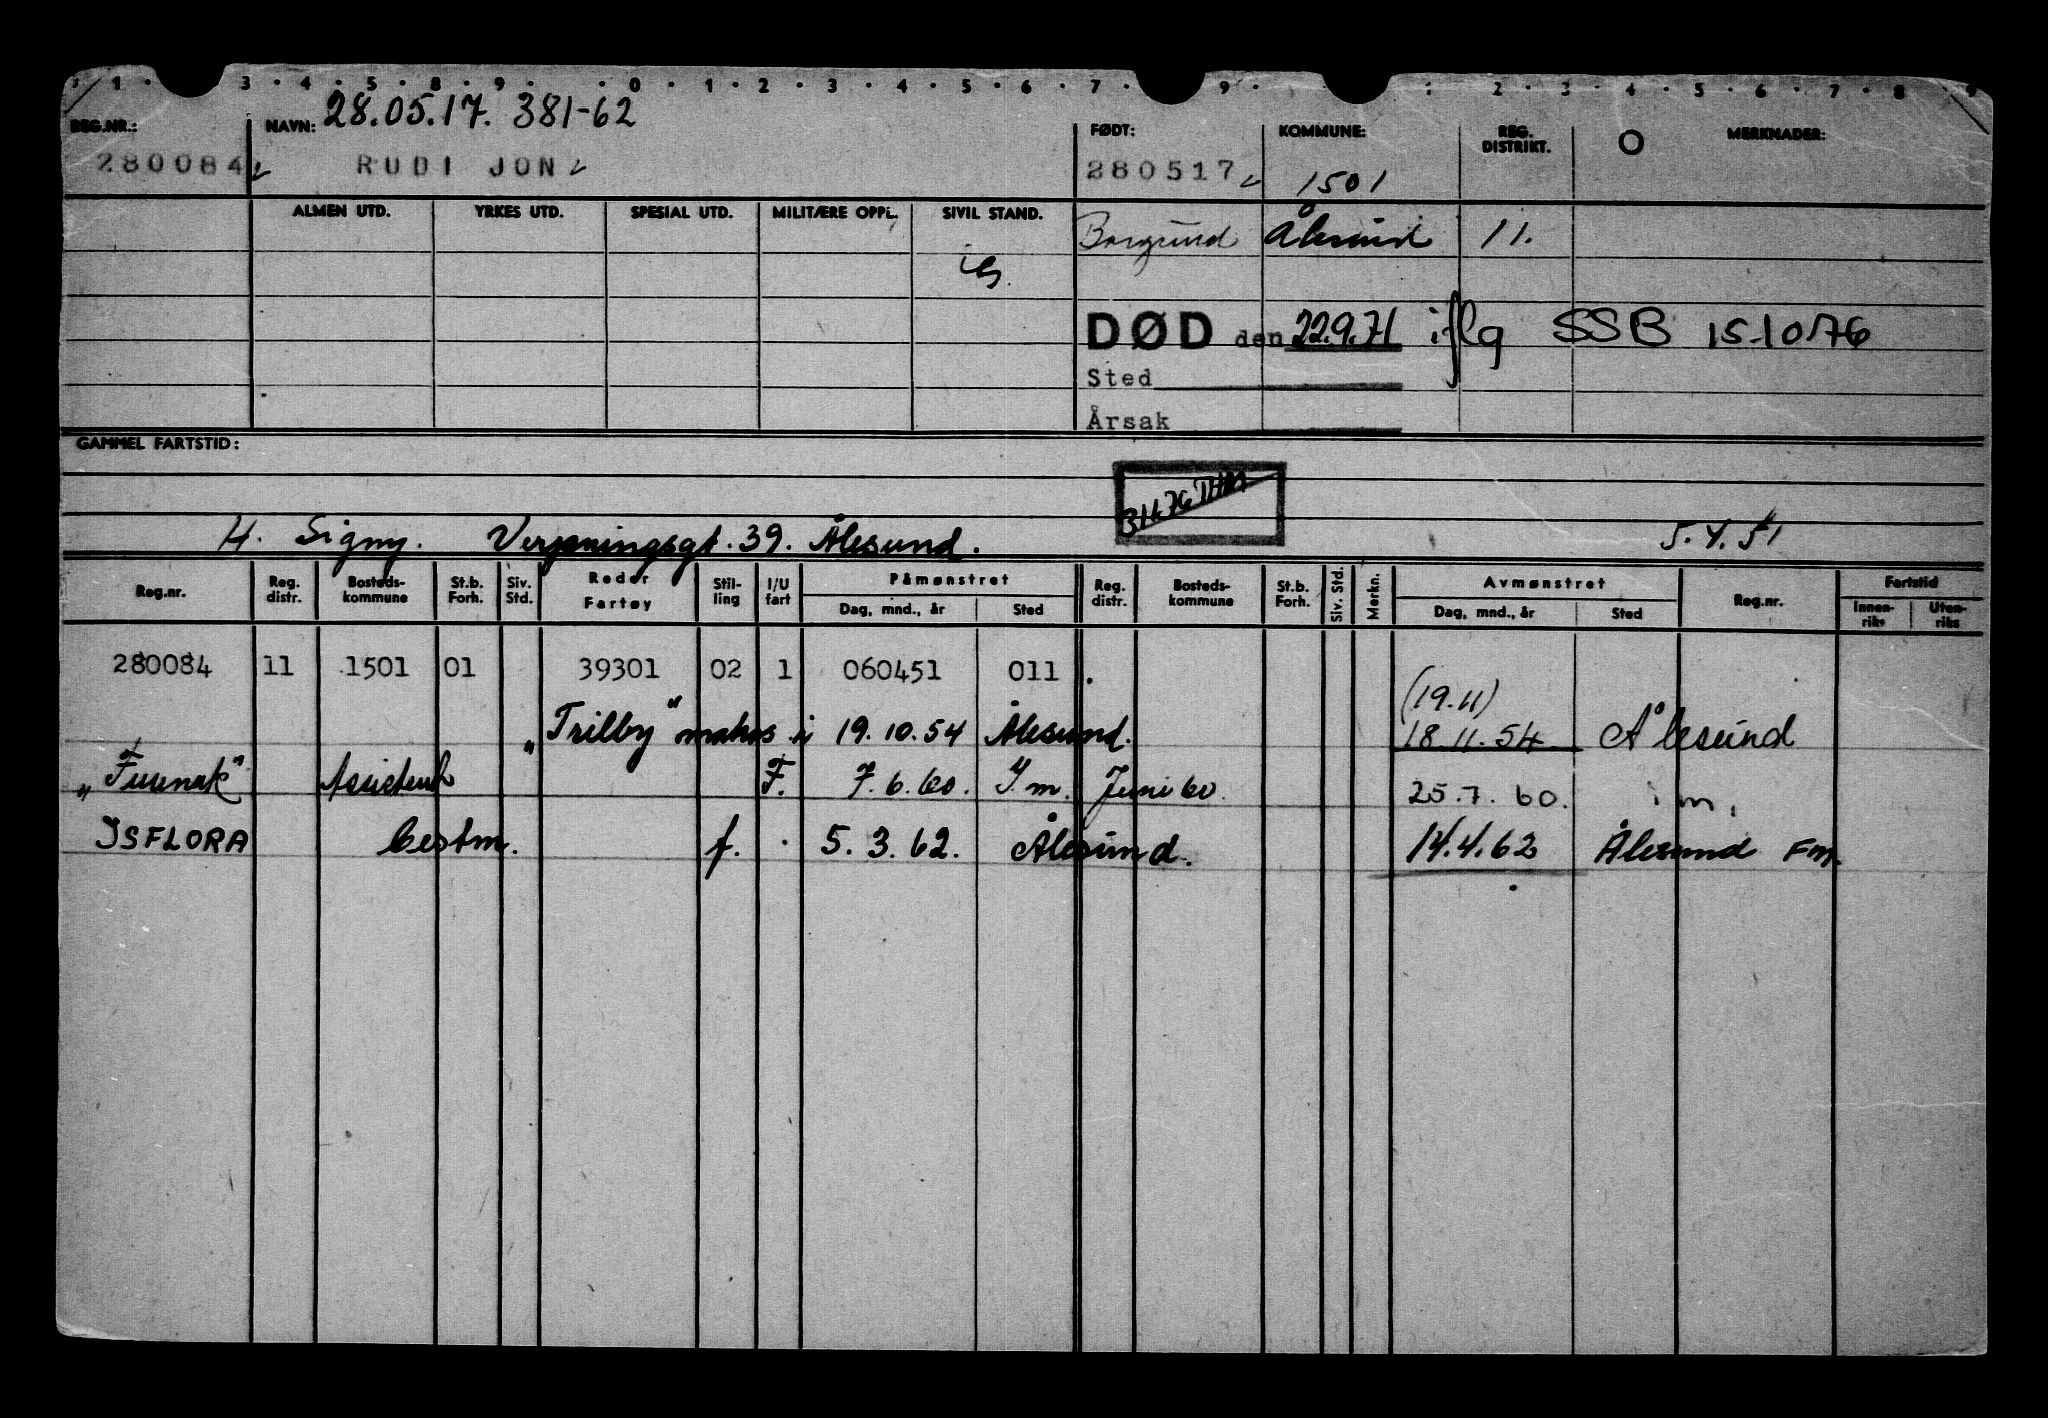 1 3 4 5 8 9 0 1 2 3 4 5 6 7 9 1 2 3 4 5 6 7 8 9
REG.NR.: NAVN: 28.05.17. 381-62 FØDT: KOMMUNE: REG. DISTRIKT. O MERKNADER:
280084 RUDI JON 280517 1501
ALMEN UTD. YRKES UTD. SPESIAL UTD. MILITÆRE OPPL. SIVIL STAND. Borgund Ålesund 11.
ig.
DØD den 22.9.71 iflg SSB 15.10.76
Sted
Årsak
GAMMEL FARTSTID:
H. Signy. Verpningsgt. 39. Ålesund. 5.4.51
Reg.nr. Reg. distr. Bosteds-kommune St.b. Forh. Siv. Std. Reder Fartøy Stil-ling I/U fart Påmønstret Dag, mnd., år Sted Reg. distr. Bosteds-kommune St.b. Forh. Siv. Std. Merkn. Avmønstret Dag, mnd., år Sted Reg.nr. Fartstid Innen-riks Uten-riks
280084 11 1501 01 39301 02 1 060451 011
(19.11)
"Trilby" i 19.10.54 Ålesund. 18.11.54 Ålesund
Assistent F. 7.6.60. I.m. Juni 60 25.7.60. i m.
ISFLORA bestm. f. 5.3.62. Ålesund. 14.4.62 Ålesund Fm.